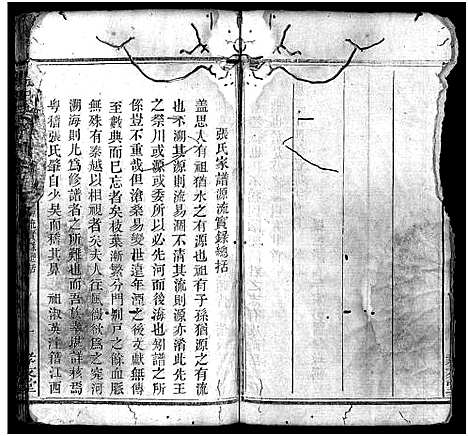 張氏家譜源流實錄總括
蓋思人有祖猶水之有源也祖有子孫猶源之有流
也不溯其源則流易涸不清其流則源亦淆此先王
之祭川或源或委所以必先河而後海也矧譜之所
係豈不重哉但滄桑易變世遠年湮之後文獻無傳
至數典而已忘者矣枝葉漸繁分門別戸之餘血脈
無殊有秦越以相視者矣夫人往風微欲爲之窮河
溯海則凡爲修譜者之所難也而吾族
粤稽張氏肇自少昊而稱其鼻祖淑英注籍江西